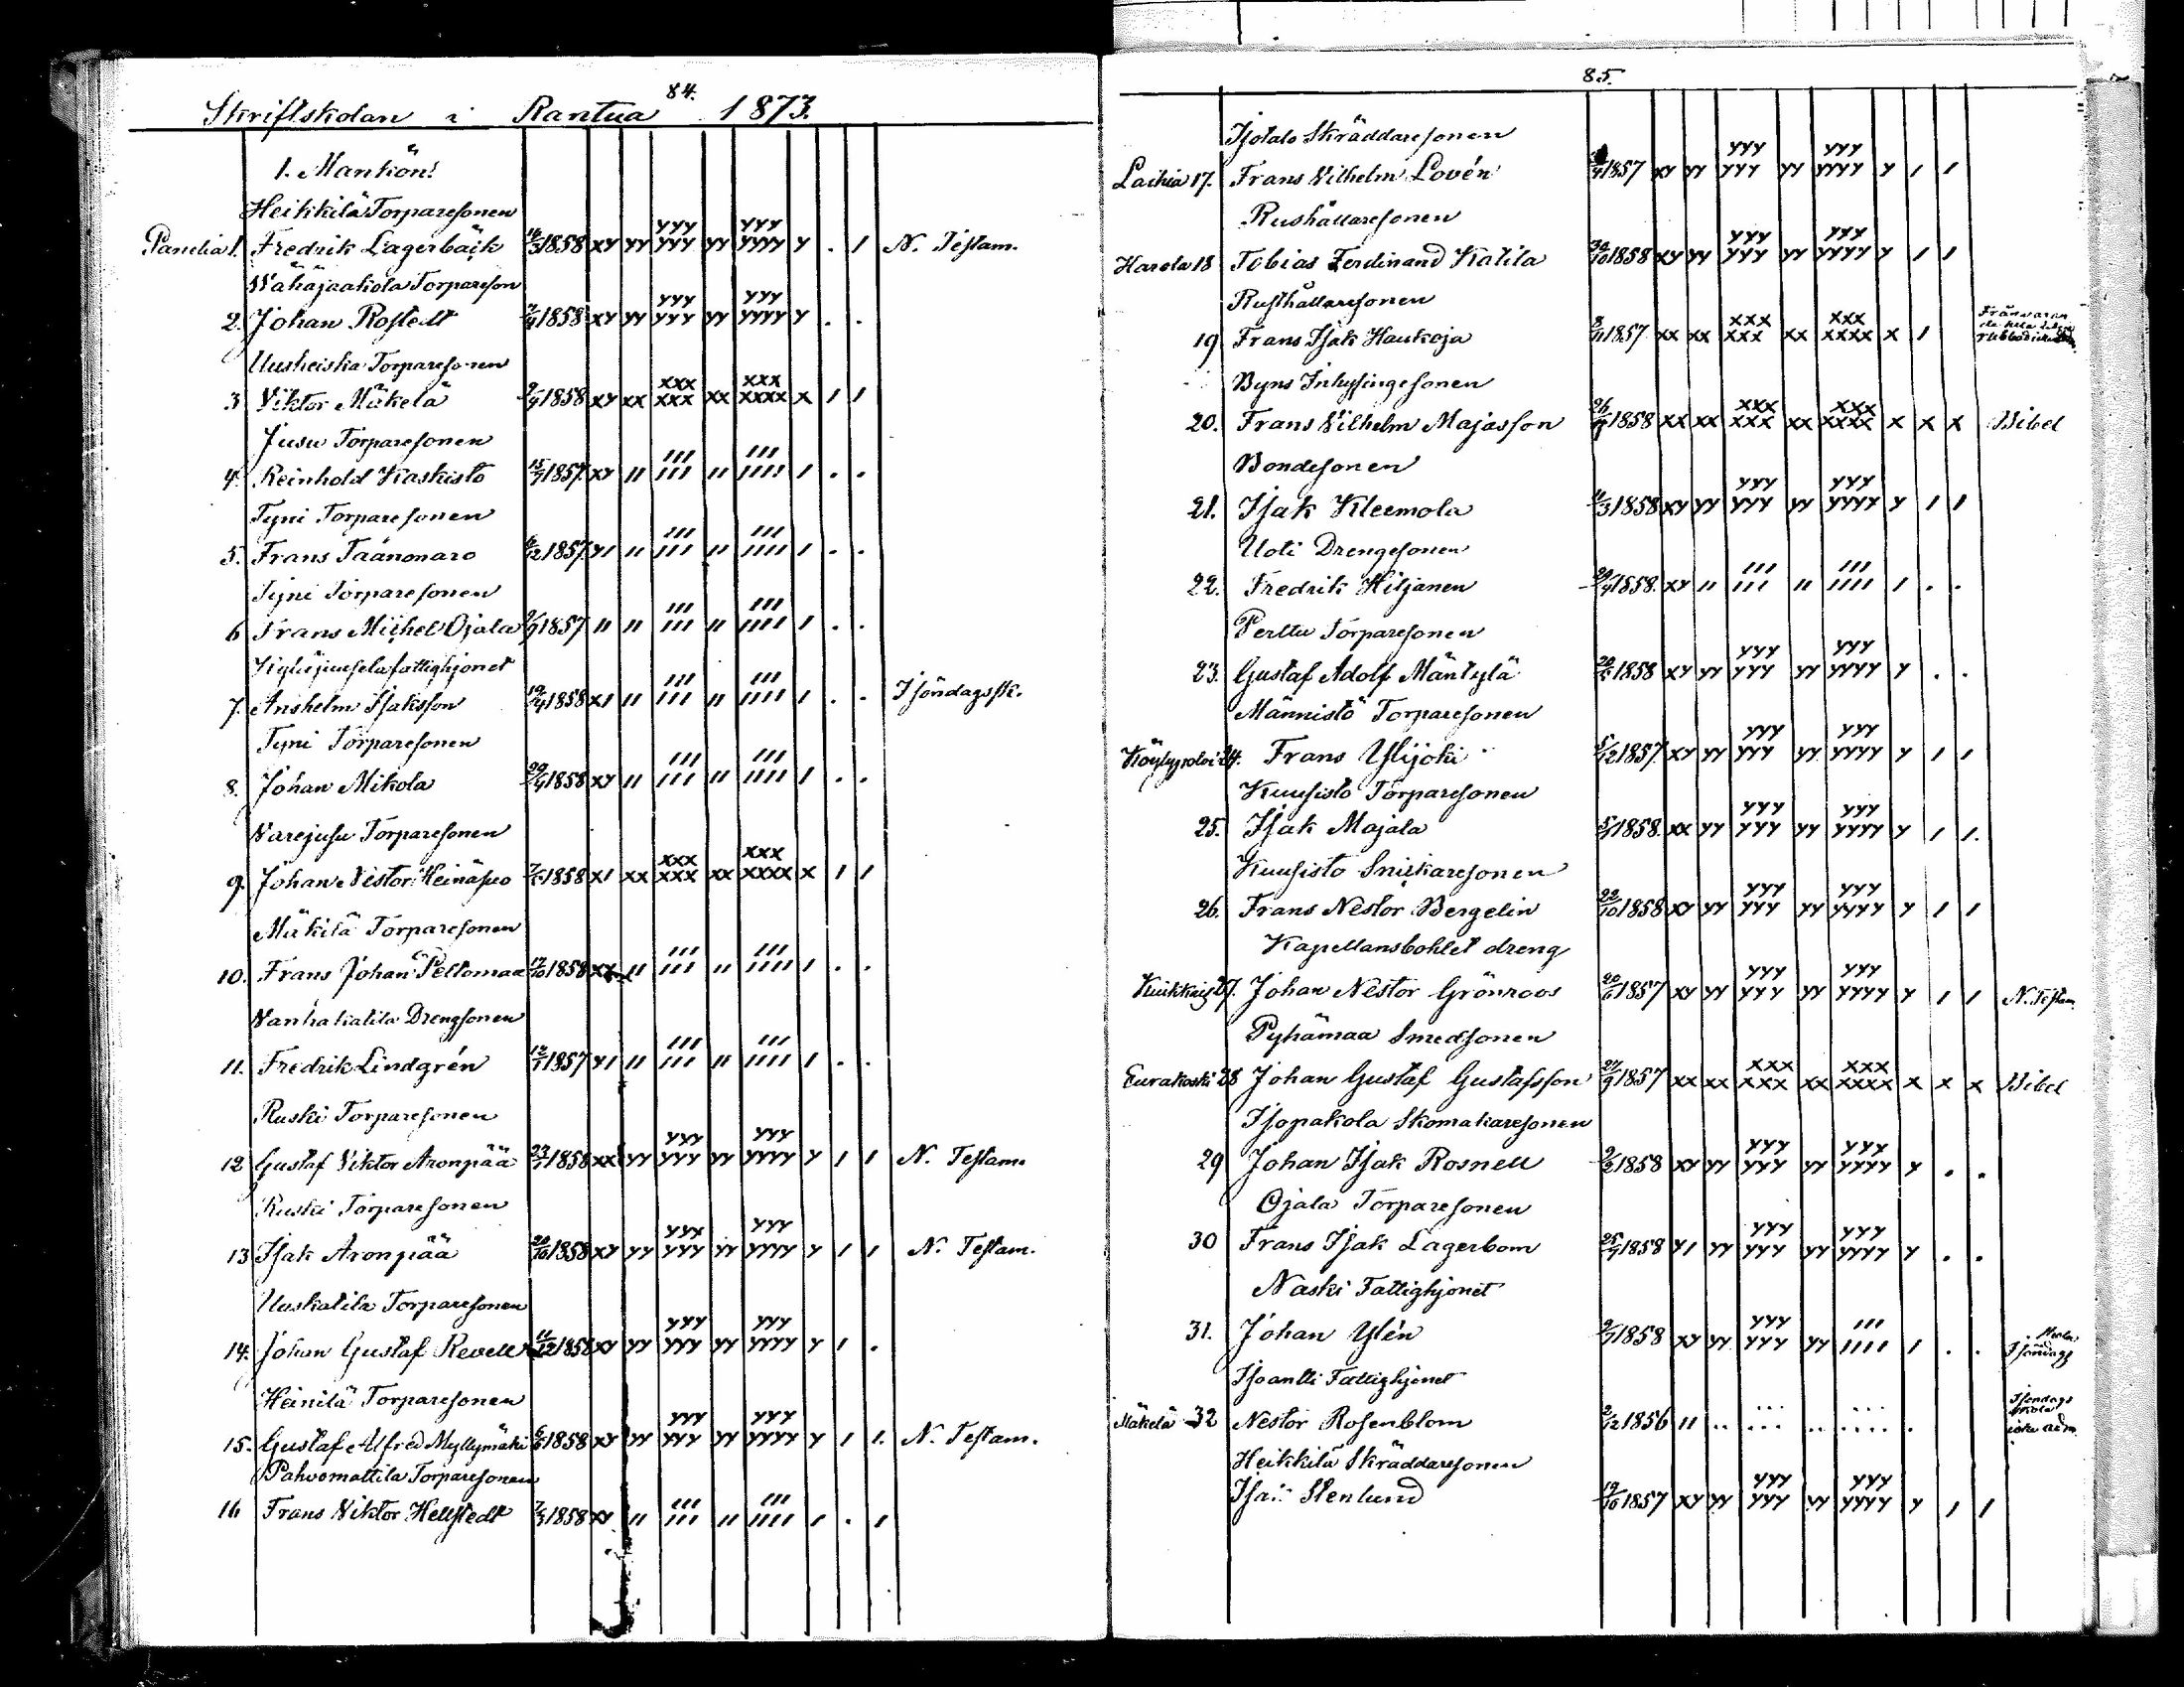 84.
Skriftskolan i Rantua 1873.
1. Mankön.
Heikkilä Torparesonen
Panelia 1. Fredrik Lagerbäck 16/3 1858 xy yy yyy yyy yy yyy yyyy y . / N. Testam.
Wähäjaakola Torpareson
2. Johan Rostedt 1858 xy yy yyy yyy yy yyy yyyy y . .
Uusheiska Torparesonen
3 Viktor Mäkelä 9/9 1858 xy xx xxx xxx xx xxx xxxx x / /
Jusu Torparesonen
4. Reinhold Kaskisto 15/7 1857. xy // /// /// // /// //// / . .
Tyni Torparesonen
5. Frans Taanonaro 6/12 1857. y/ // /// /// // /// //// / . .
Tyni Torparesonen
6 Frans Michel Ojala 2/9 1857 // // /// /// // /// //// / . .
fattighjonet
7. Anshelm Isaksson 19/4 1858 x/ // /// /// // /// //// / . . I söndagssk.
Tyni Torparesonen
8. Johan Mikola 29/9 1858 xy // /// /// // /// //// / . .
Warejusu Torparesonen
9. Johan Nestor Heinäsuo 1858 x/ xx xxx xxx xx xxx xxxx x / /
Mäkilä Torparesonen
10. Frans Johan Peltomaa 17/10 1858 // /// /// // /// //// / . .
Vanhakatila Drengsonen
11. Fredrik Lindgrén 1857 y/ // /// /// // /// //// / . .
Ruski Torparesonen
12 Gustaf Viktor Aronpää 23/7 1858 xx yy yyy yyy yy yyy yyyy y / / N. Testam.
Ruski Torparesonen
13 Isak Aronpää 20/10 1858 xy yy yyy yyy yy yyy yyyy y / / N. Testam.
Uuskatila Torparesonen
14. Johan Gustaf Revell 11/12 1858 xy yy yyy yyy yy yyy yyyy y / .
Heinilä Torparesonen
15. Gustaf Alfred Myllymäki 1858 xy yy yyy yyy yy yyy yyyy y / /. N. Testam.
Pahvomattila Torparesonen
16 Frans Viktor Hellstedt 7/3 1858 xy // /// /// // /// //// / . /
85.
Isotalo Skräddaresonen
Laihia 17. Frans Vilhelm Lovén 1857 xy yy yyy yyy yy yyy yyyy y / /
Rushållaresonen
Harola 18 Tobias Ferdinand Katila 30/10 1858 xy yy yyy yyy yy yyy yyyy y / /
Rusthållaresonen
19 Frans Isak Haukoja 8/11 1857 xx xx xxx xxx xx xxx xxxx x /
Byns Inhysingesonen
20. Frans Vilhelm Majasson 1858 xx xx xxx xxx xx xxx xxxx x x x Bibel
Bondesonen
21. Isak Kleemola 11/3 1858 xy yy yyy yyy yy yyy yyyy y / /
Uoti Drengesonen
22. Fredrik Hiljanen 29/9 1858. xy // /// /// // /// //// / . .
Perttu Torparesonen
23. Gustaf Adolf Mäntylä 1858 xy yy yyy yyy yy yyy yyyy y . .
Männistö Torparesonen
24. Frans Ylijoki 5/12 1857 xy yy yyy yyy yy yyy yyyy y / /
Kuusisto Torparesonen
25. Isak Majala 1858. xx yy yyy yyy yy yyy yyyy y / /.
Kuusisto Snickaresonen
26. Frans Nestor Bergelin 22/10 1858 xy yy yyy yyy yy yyy yyyy y / /
Kapellansbohlet dreng
27. Johan Nestor Grönroos 20/6 1857 xy yy yyy yyy yy yyy yyyy y / / N. Testam.
Pyhämaa Smedsonen
Eurakoski 28 Johan Gustaf Gustafsson 27/9 1857 xx xx xxx xxx xx xxx xxxx x x x Bibel
Isopakola Skomakaresonen
29 Johan Isak Rosnell 9/3 1858 xy yy yyy yyy yy yyy yyyy y . .
Ojala Torparesonen
30 Frans Isak Lagerbom 25/9 1858 y/ yy yyy yyy yy yyy yyyy y . .
Naski Fattighjonet
31. Johan Ylén 9/7 1858 xy yy yyy yyy yy /// //// / . . I söndags
Isoantti Fattighjonet
Mäkelä 32 Nestor Rosenblom 2/12 1856 // .. ... ... .. ... .... . I söndags skola icke adm.
Heikkilä Skräddaresonen
Stenlund 19/10 1857 xy yy yyy yyy yy yyy yyyy y / /